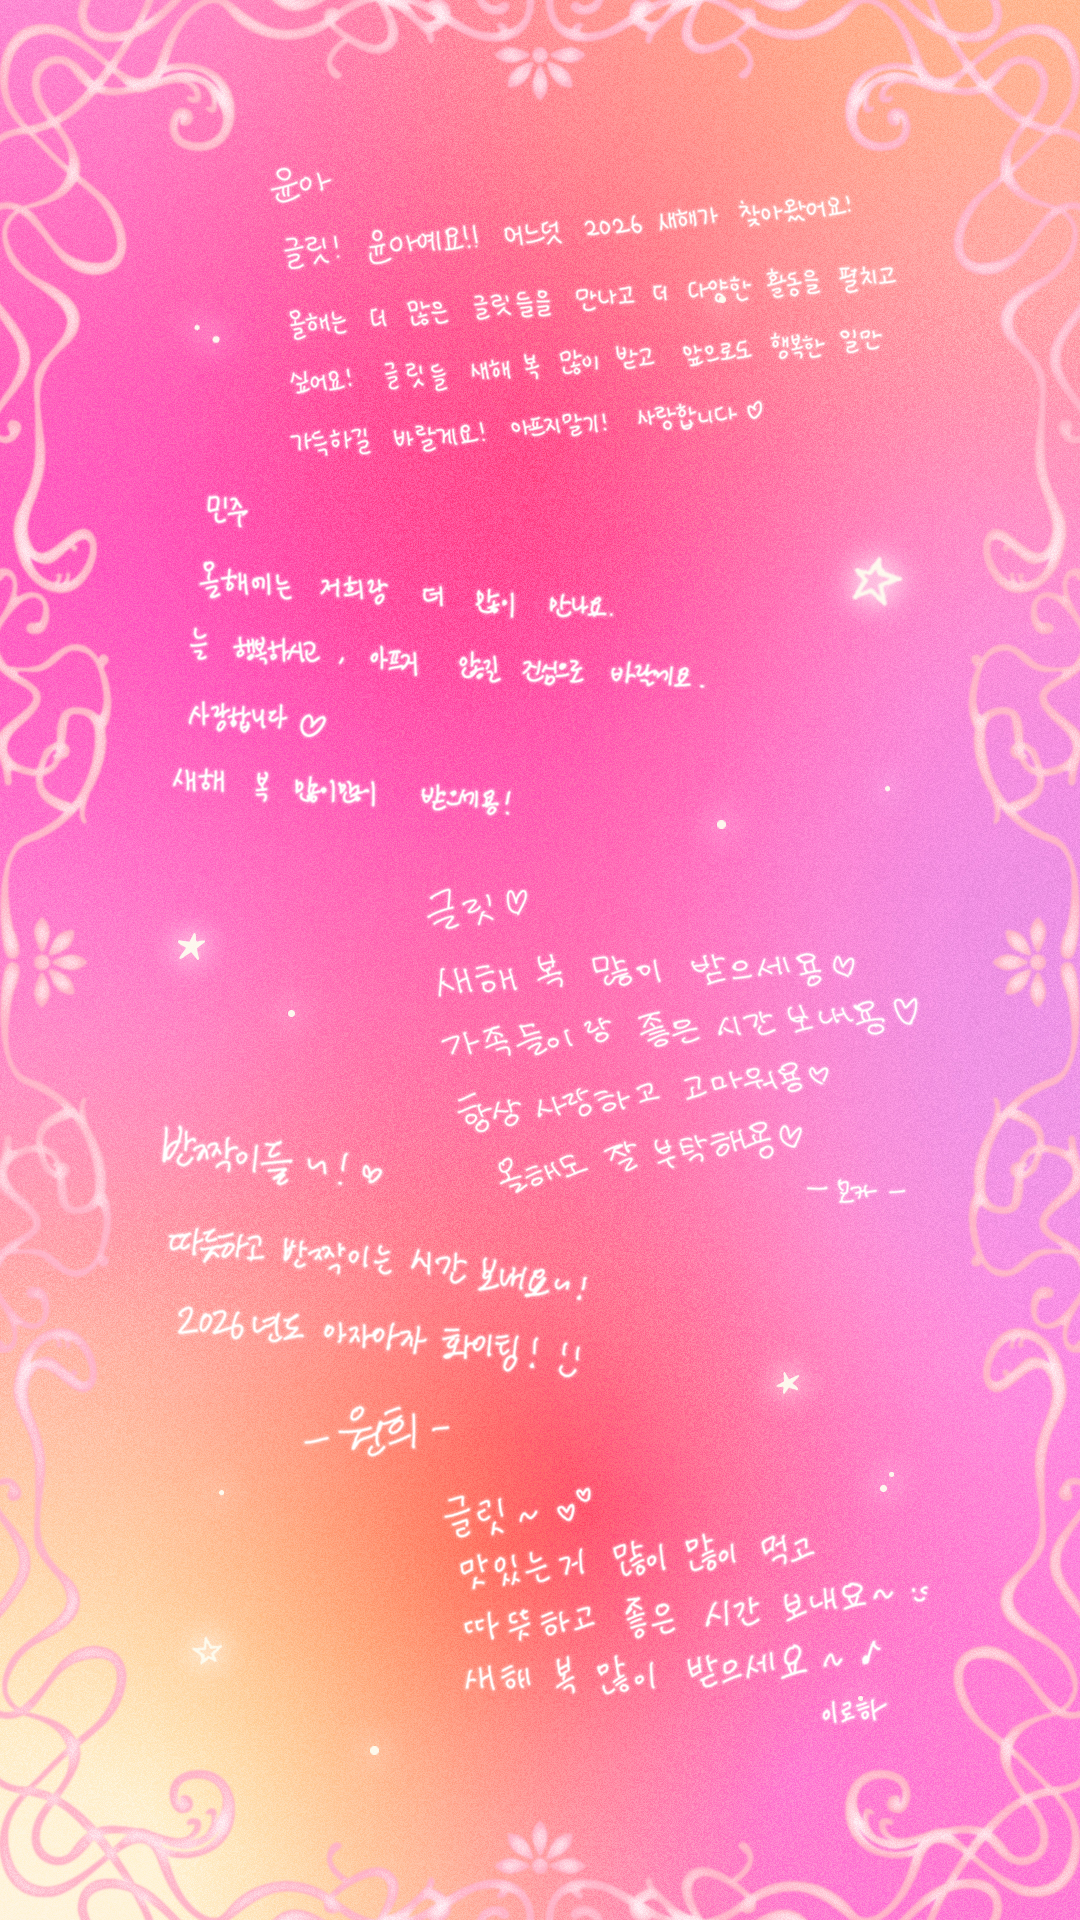 윤아
글릿! 윤아예요!! 어느덧 2026 새해가 찾아왔어요!
올해는 더 많은 글릿들을 만나고 더 다양한 활동을 펼치고
싶어요! 글릿들 새해 복 많이 받고 앞으로도 행복한 일만
가득하길 바랄게요! 아프지말기! 사랑합니다 ♡
민주
올해에는 저희랑 더 많이 만나요.
늘 행복하시고, 아프지 않길 진심으로 바랄께요.
사랑합니다 ♡
새해 복 많이많이 받으세용!
글릿 ♡
새해 복 많이 받으세용 ♡
가족들이랑 좋은 시간 보내용 ♡
항상 사랑하고 고마워용 ♡
올해도 잘 부탁해용 ♡
- 모카 -
반짝이들 ~! ♡
따뜻하고 반짝이는 시간 보내요~!
2026년도 아자아자 화이팅! :)
- 원희 -
글릿 ~ ♡♡
맛있는거 많이 많이 먹고
따뜻하고 좋은 시간 보내요~ :)
새해 복 많이 받으세요 ~ ♪
이로하